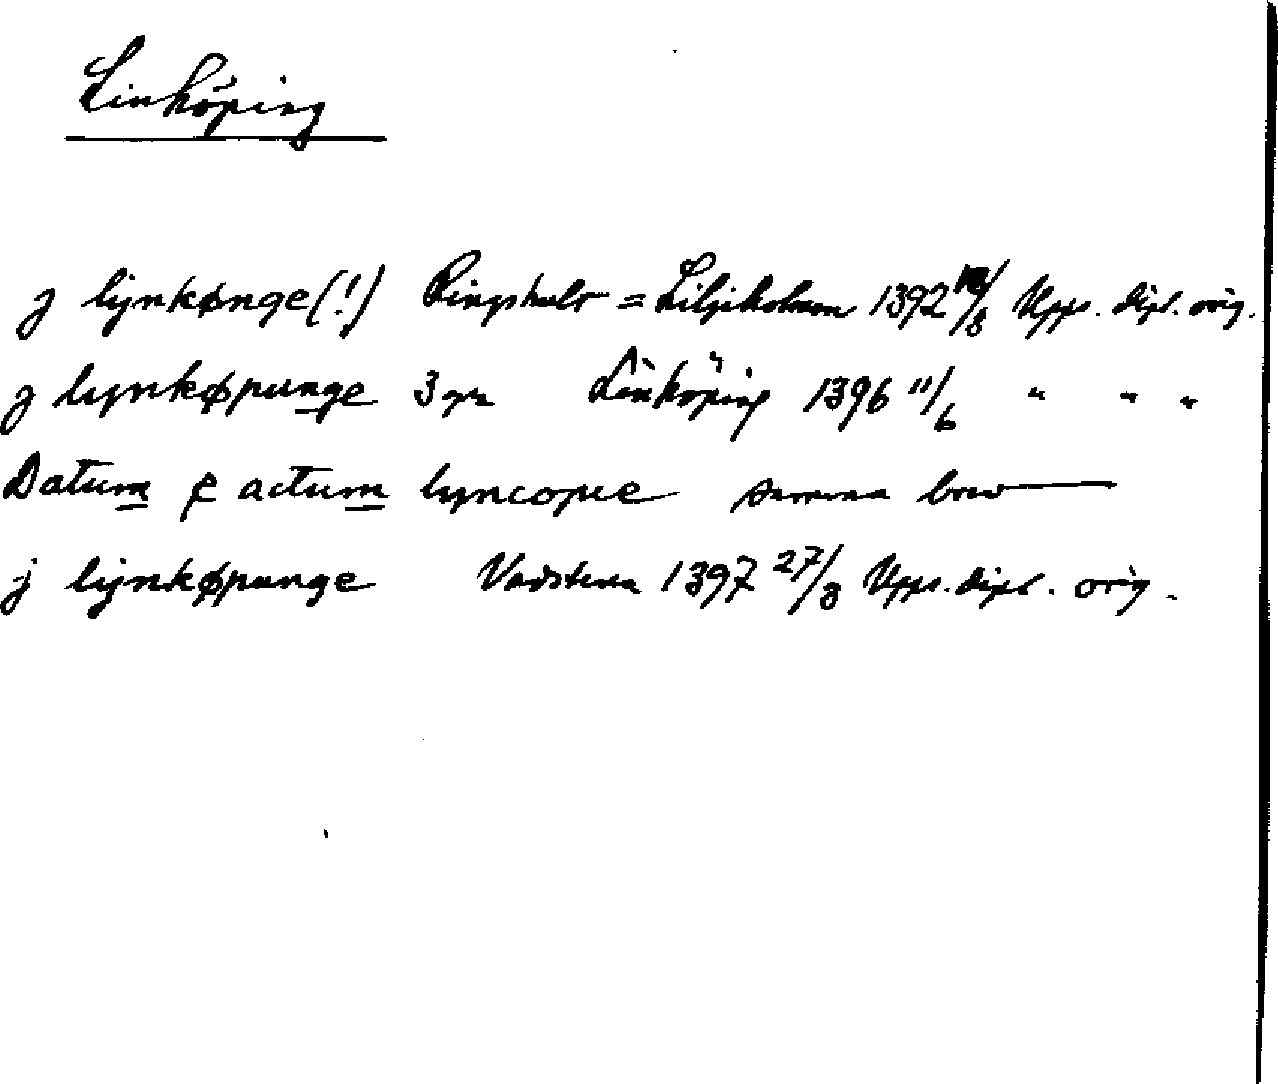 Linköping
j lijnkønge(!) Ringshult = Liljeholmen 1392 /8 Upps. dipl. orig.
j lynkøpunge 3 ggr Linköping 1396 11/6 " " "
Datum & actum lyncopie samma brev
j lijnkøpunge Vadstena 1397 27/3 Upps. dipl. orig.